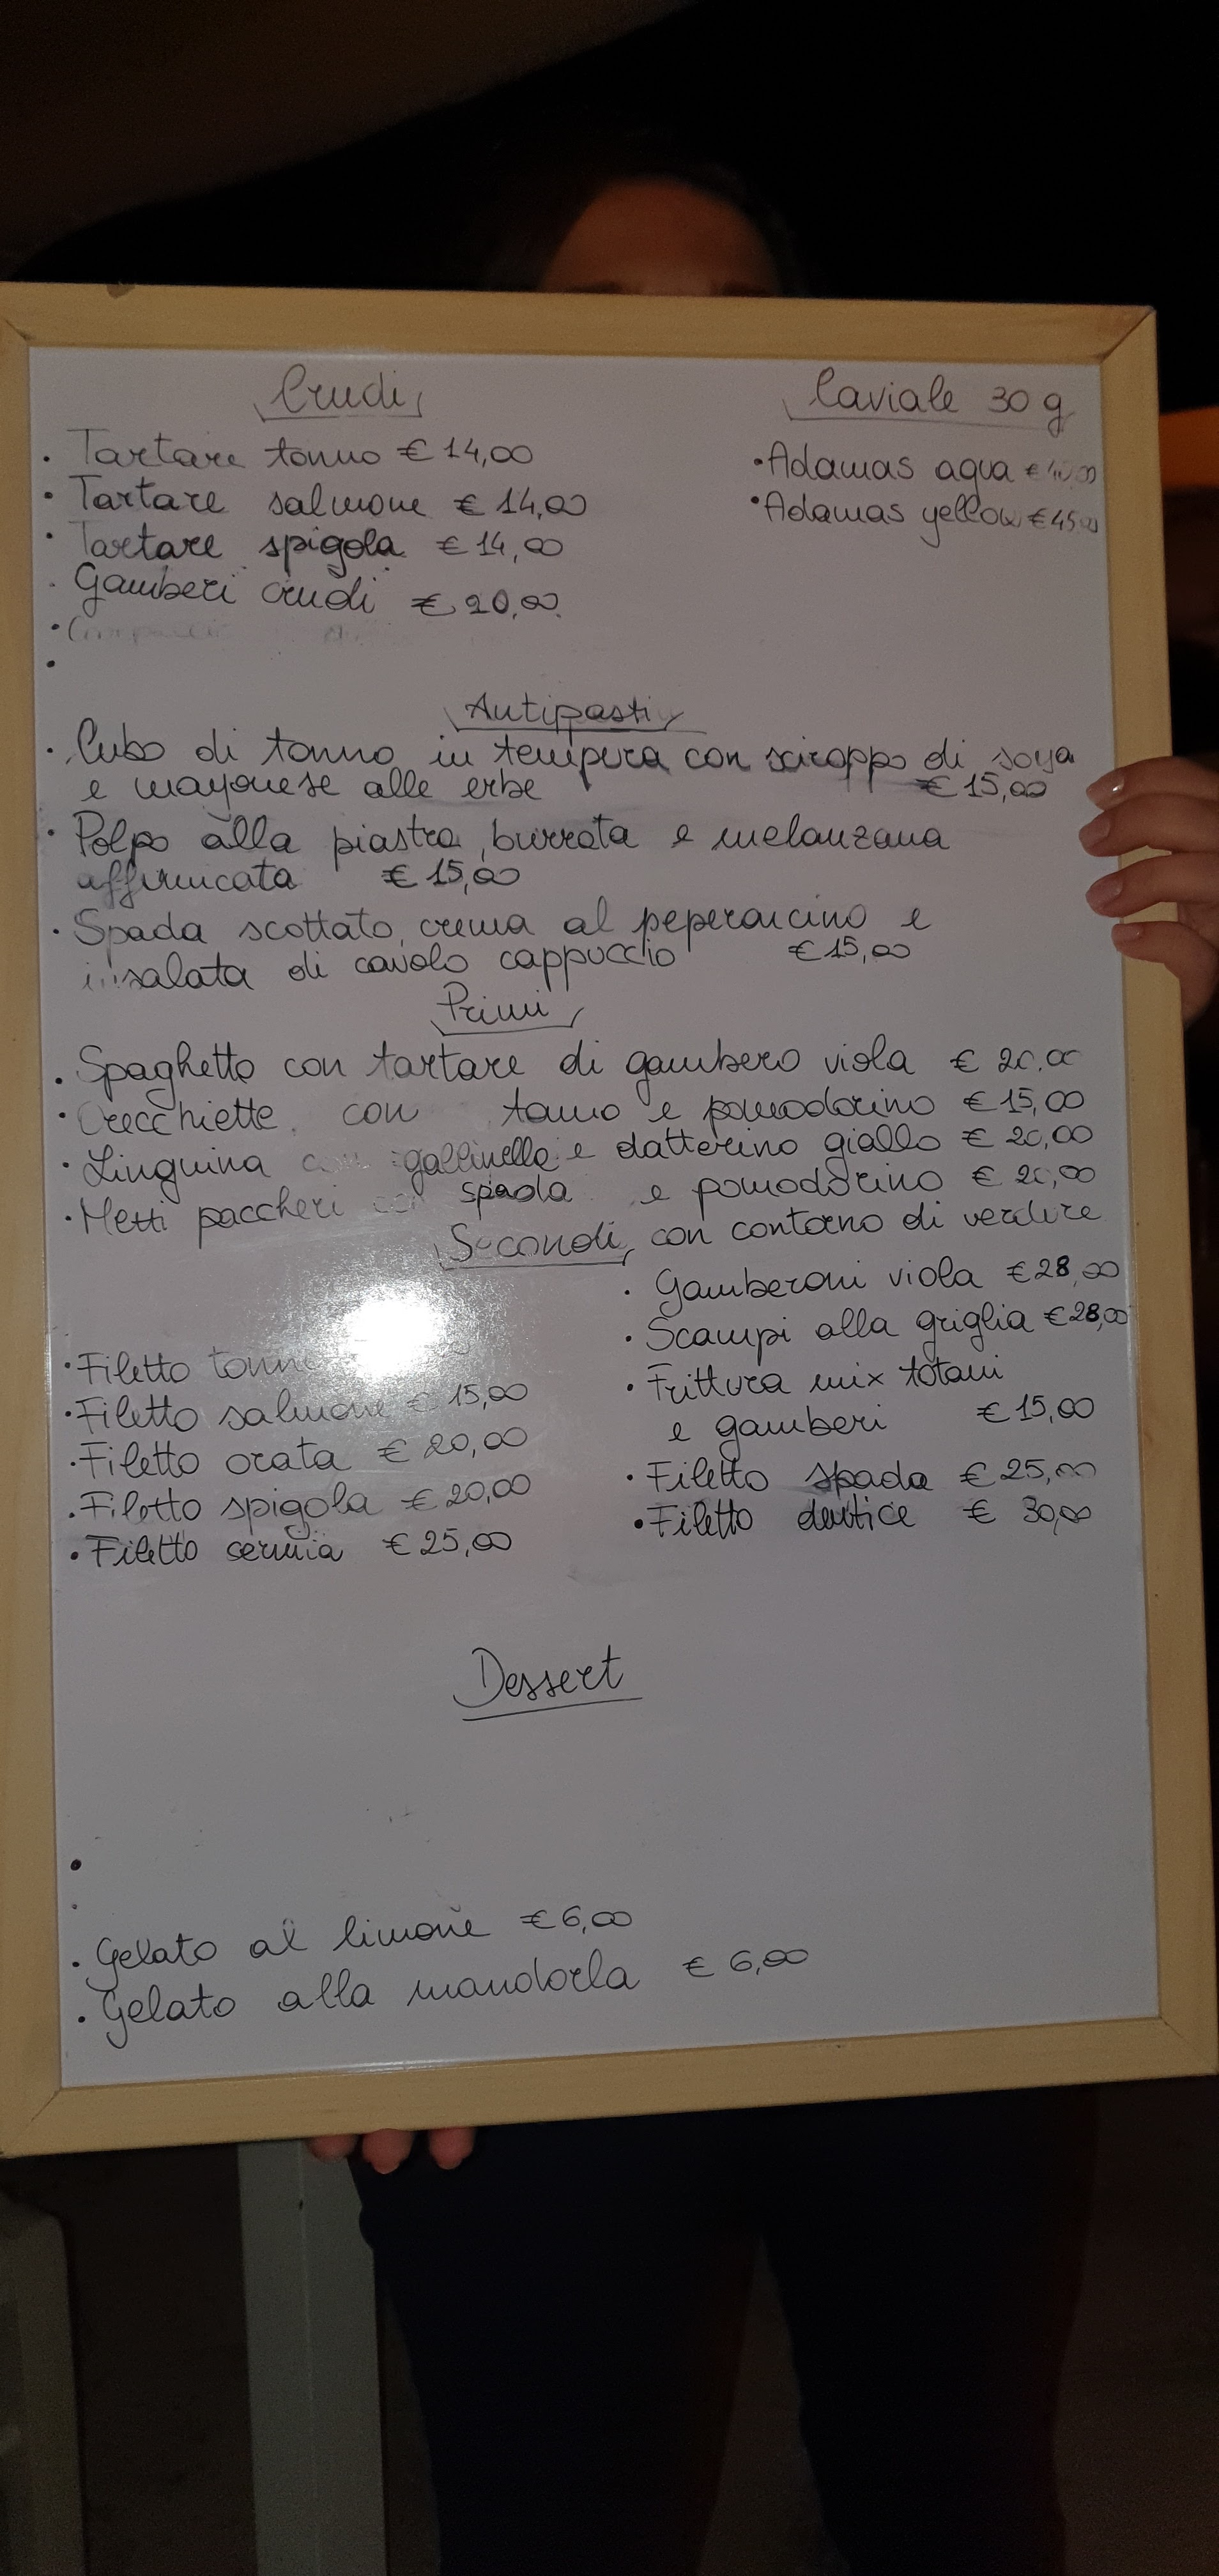 Crudi
· Tartare tonno € 14,00
· Tartare salmone € 14,00
· Tartare spigola € 14,00
· Gamberi crudi € 20,00
Caviale 30 g
· Adamas aqua
· Adamas yellow € 45,00
Antipasti
· Cubo di tonno in tempura con sciroppo di soya
e mayonese alle erbe € 15,00
· Polpo alla piastra, burrata e melanzana
affumicata € 15,00
· Spada scottato, crema al peperoncino e
insalata di cavolo cappuccio € 15,00
Primi
· Spaghetto con tartare di gambero viola € 20,00
· Orecchiette con tonno e pomodorino € 15,00
· Linguina con gallinella e datterino giallo € 20,00
· Metti paccheri con spada e pomodorino € 20,00
Secondi, con contorno di verdure
· Filetto tonno
· Filetto salmone € 15,00
· Filetto orata € 20,00
· Filetto spigola € 20,00
· Filetto cernia € 25,00
· Gamberoni viola € 28,00
· Scampi alla griglia € 28,00
· Frittura mix totani
e gamberi € 15,00
· Filetto spada € 25,00
· Filetto dentice € 30,00
Dessert
· Gelato al limone € 6,00
· Gelato alla mandorla € 6,00